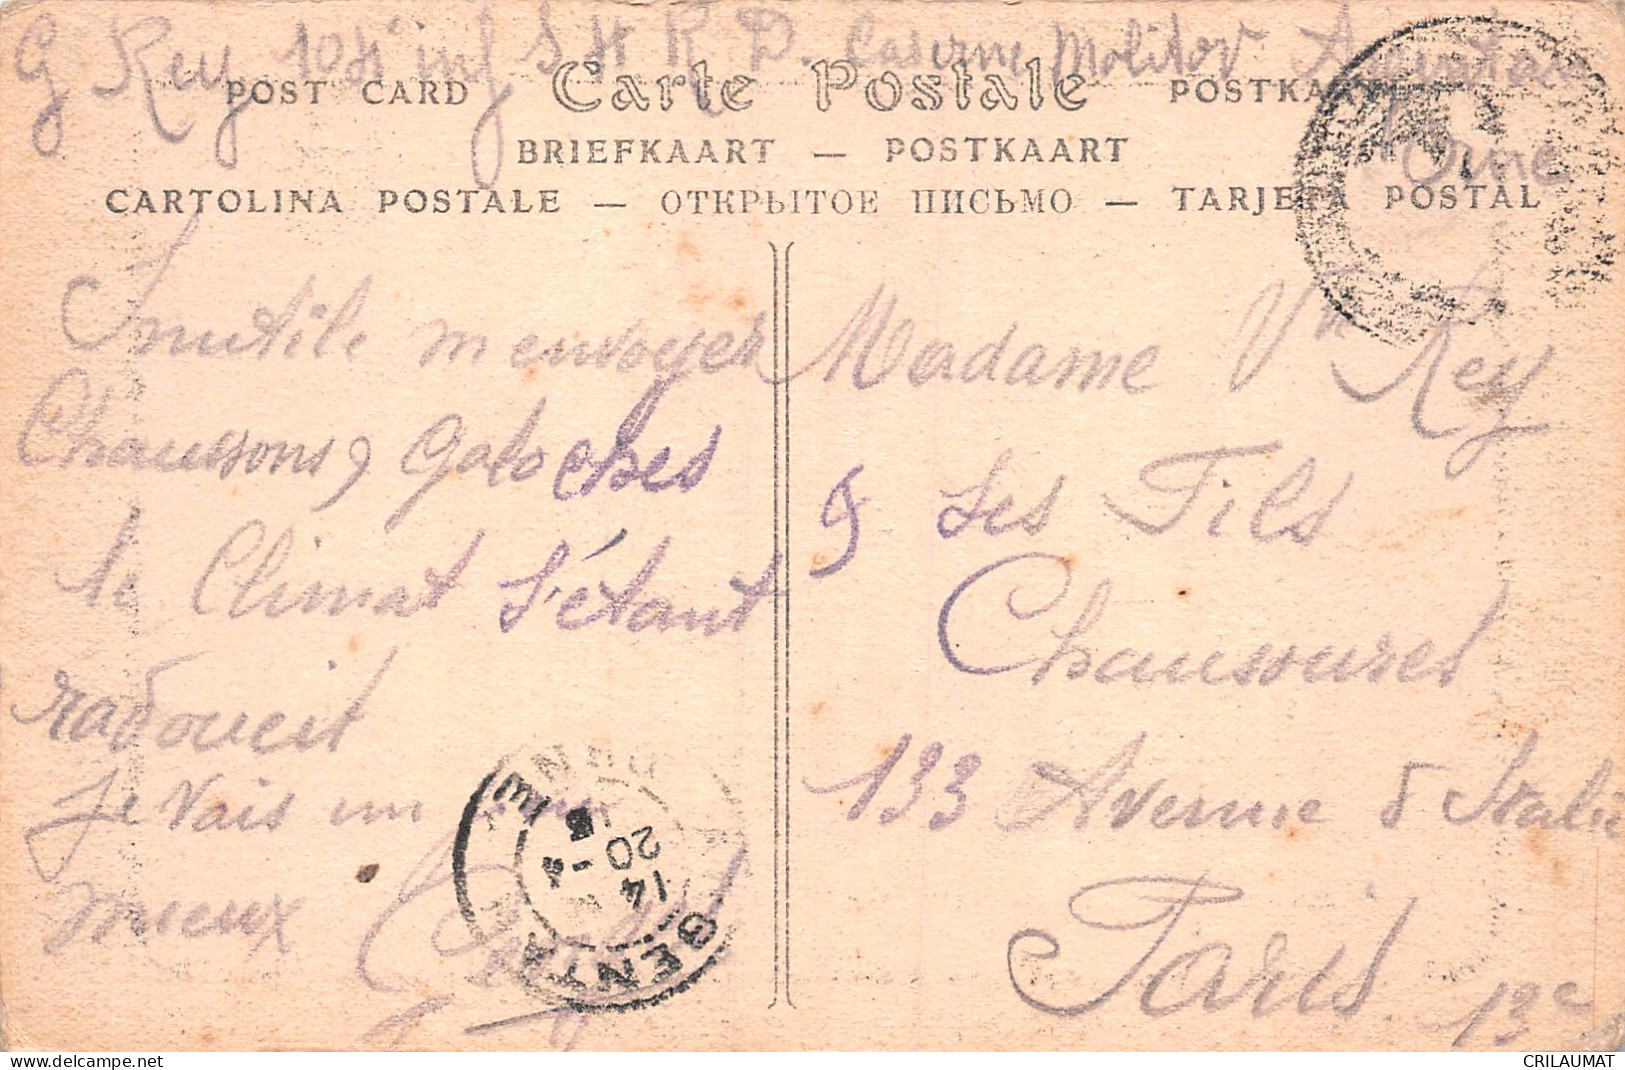 G Rey 104e inf S H R D. Caserne Molitor Argentan
Orne
POST CARD Carte Postale POSTKARTE
BRIEFKAART — POSTKAART
CARTOLINA POSTALE — ОТКРЫТОЕ ПИСЬМО — TARJETA POSTAL
Inutile m envoyer
Chaussons, Galoches
le Climat s'étant
radoucit
Je Vais un peu
mieux
Madame Vve Rey
& Ses Fils
Chaussures
133 Avenue d Italie
Paris
13e
ARGENTAN
20-4
14
delcampe.net
CRILAUMAT